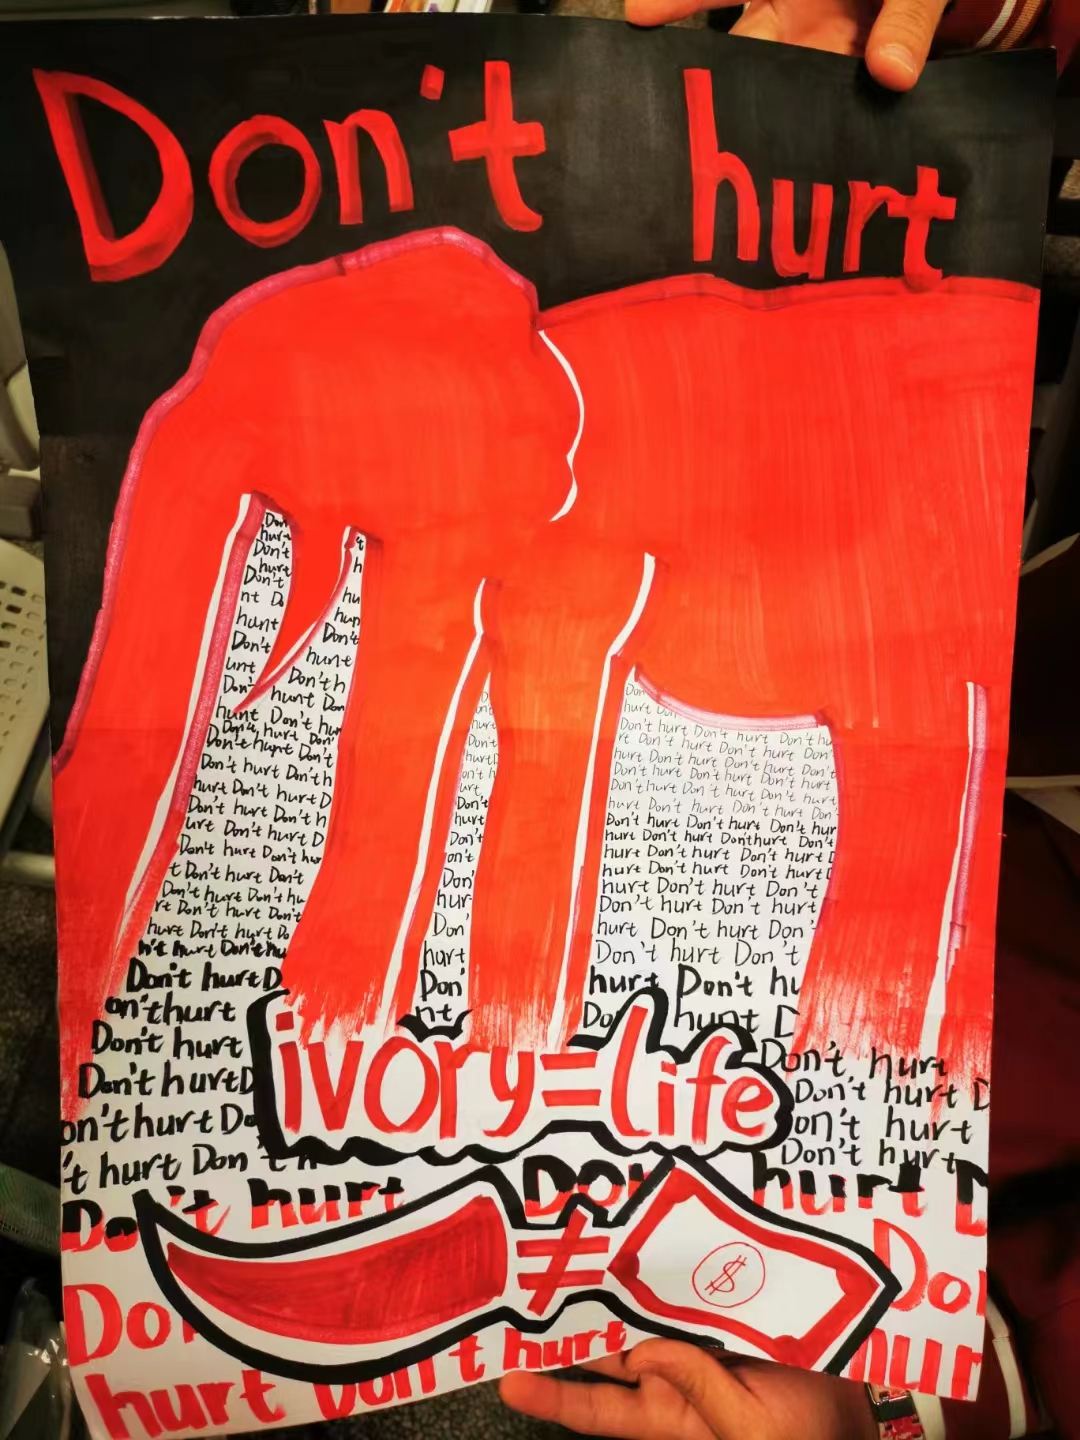 Don't hurt
Don
hurt
Don't
hurt
Don't
nt D
hunt
Don't
unt
Don't
hunt Don't hur
Don't hurt Don't
Don't hurt Don't
Don't hurt Don't h
hurt Don't hurt D
Don't hurt Don't h
urt Don't hurt D
Don't hurt Don't hu
t Don't hurt Don't
Don't hurt Don't hu
rt Don't hurt Don't
hurt Don't hurt Do
n't hurt Don't hu
Don't hurt D
on't hurt
Don't hurt
Don't hurt D
on't hurt Do
't hurt Don't h
't
h
hu
hup
Don't
hunt
Don't h
hunt Don
Don
hurt
Don't
hurt D
on't h
urt
Don't
hurt
Don't
on't
Don'
hur
Don'
hurt
Don'
nt
Don
hurt Don
Don't hurt Don't hu
rt Don't hurt Don't
hurt Don't hurt Don't
Don't hurt Don't hurt
hurt Don't hurt Don't
hurt Don't hurt Don't hurt
Don't hurt Don't hurt Don't hur
hurt Don't hurt Don't hurt Don't
hurt Don't hurt Don't hurt D
hurt Don't hurt Don't hurt D
hurt Don't hurt Don't
Don't hurt Don't hurt
hurt Don't hurt Don'
Don't hurt Don't
hurt Don't hu
Do hunt D
Don't hurt
Don't hurt D
on't hurt
Don't hurt
ivory=life
Don't hurt Don hurt D
≠
$
Don Don
hurt Don't hurt hur